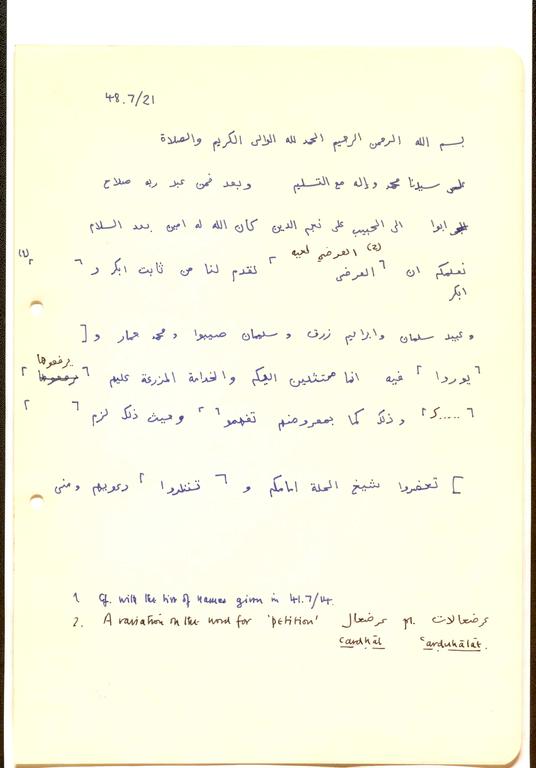 48.7/21
بسم الله الرحمن الرحيم الحمد لله الوالى الكريم والصلاة
على سيدنا محمد واله مع التسليم وبعد فمن عبد ربه صلاح
ابوا الى المحبيب على نجم الدين كان الله له امين بعد السلام
(2) العرضي لعيه
(1) نعلمكم ان ⌜العرضى ⌝ تقدم لنا من ثابت ابكر و ⌜ ⌝
ابكر
وعبيد سلمان وابراهيم زرق وسلمان صبيوا ومحمد عمار و [
يرفعوها
⌜يوردا⌝ فيه انها ممتثلين اليكم والخدامة المزرعة عليهم ⌜ ⌝
⌜.....ك⌝ وذلك كما بمعروضهم تفهمو⌜ ⌝ وحيث ذلك لزم ⌜ ⌝
] تحضروا شيخ المحلة امامكم و ⌜ تنظروا ⌝ دعويهم ومنى
1 Cf. with the list of names given in 41.7/14.
2. A variation on the word for 'petition' عرضحال pl. عرضحالات
ʿarḍḥāl ʿarḍuḥālāt.